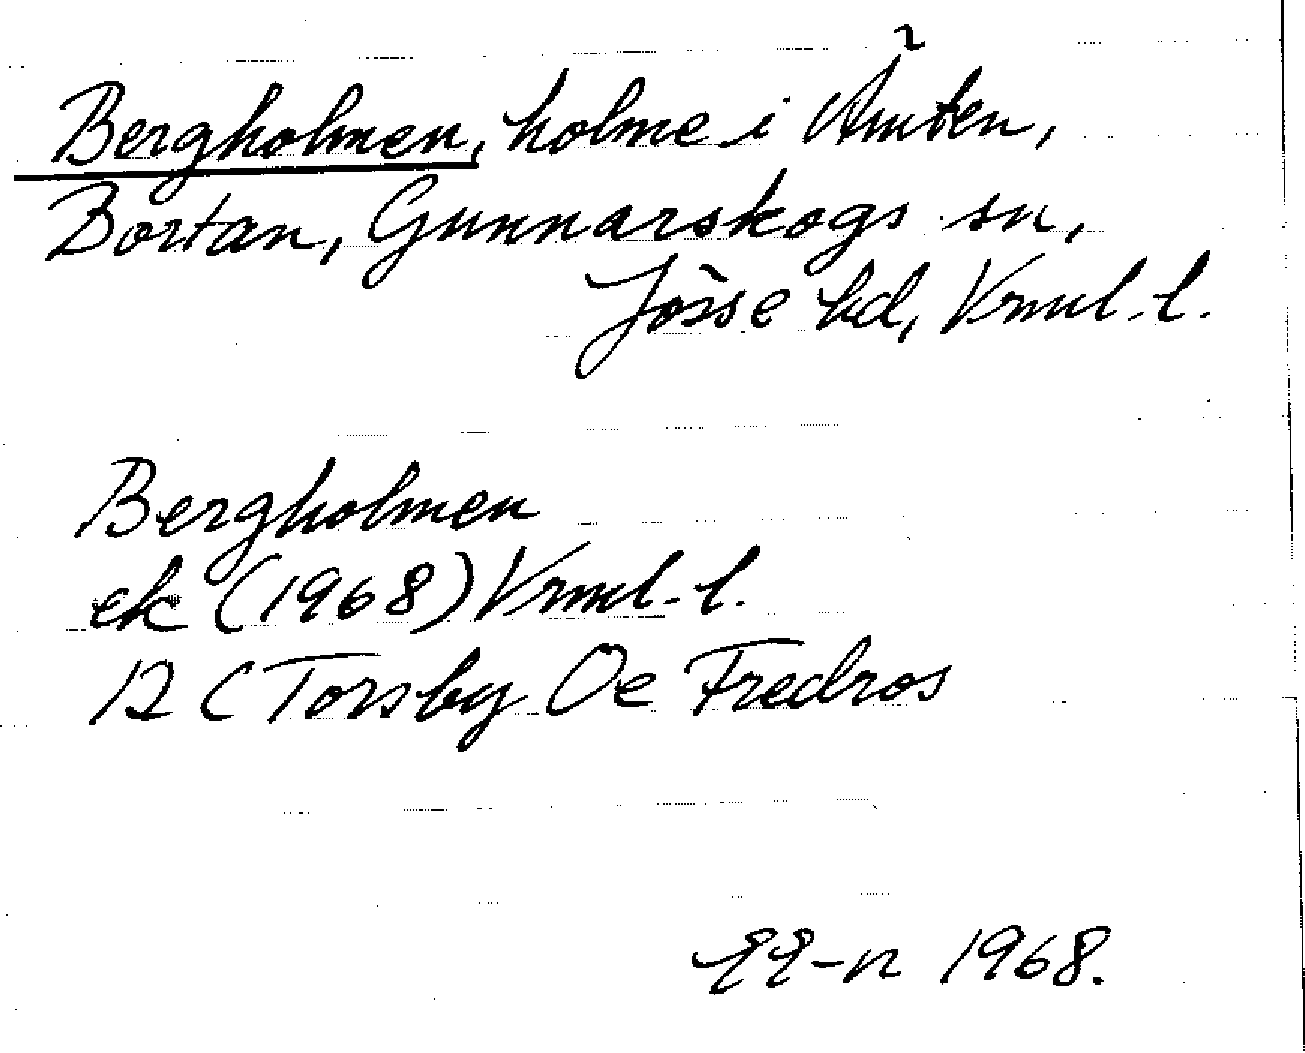 Bergholmen, holme i Ämten,
Bortan, Gunnarskogs sn,
Jösse hd, Vrml. l.
Bergholmen
ek (1968) Vrml. l.
12 C Torsby Oe Fredros
1968.